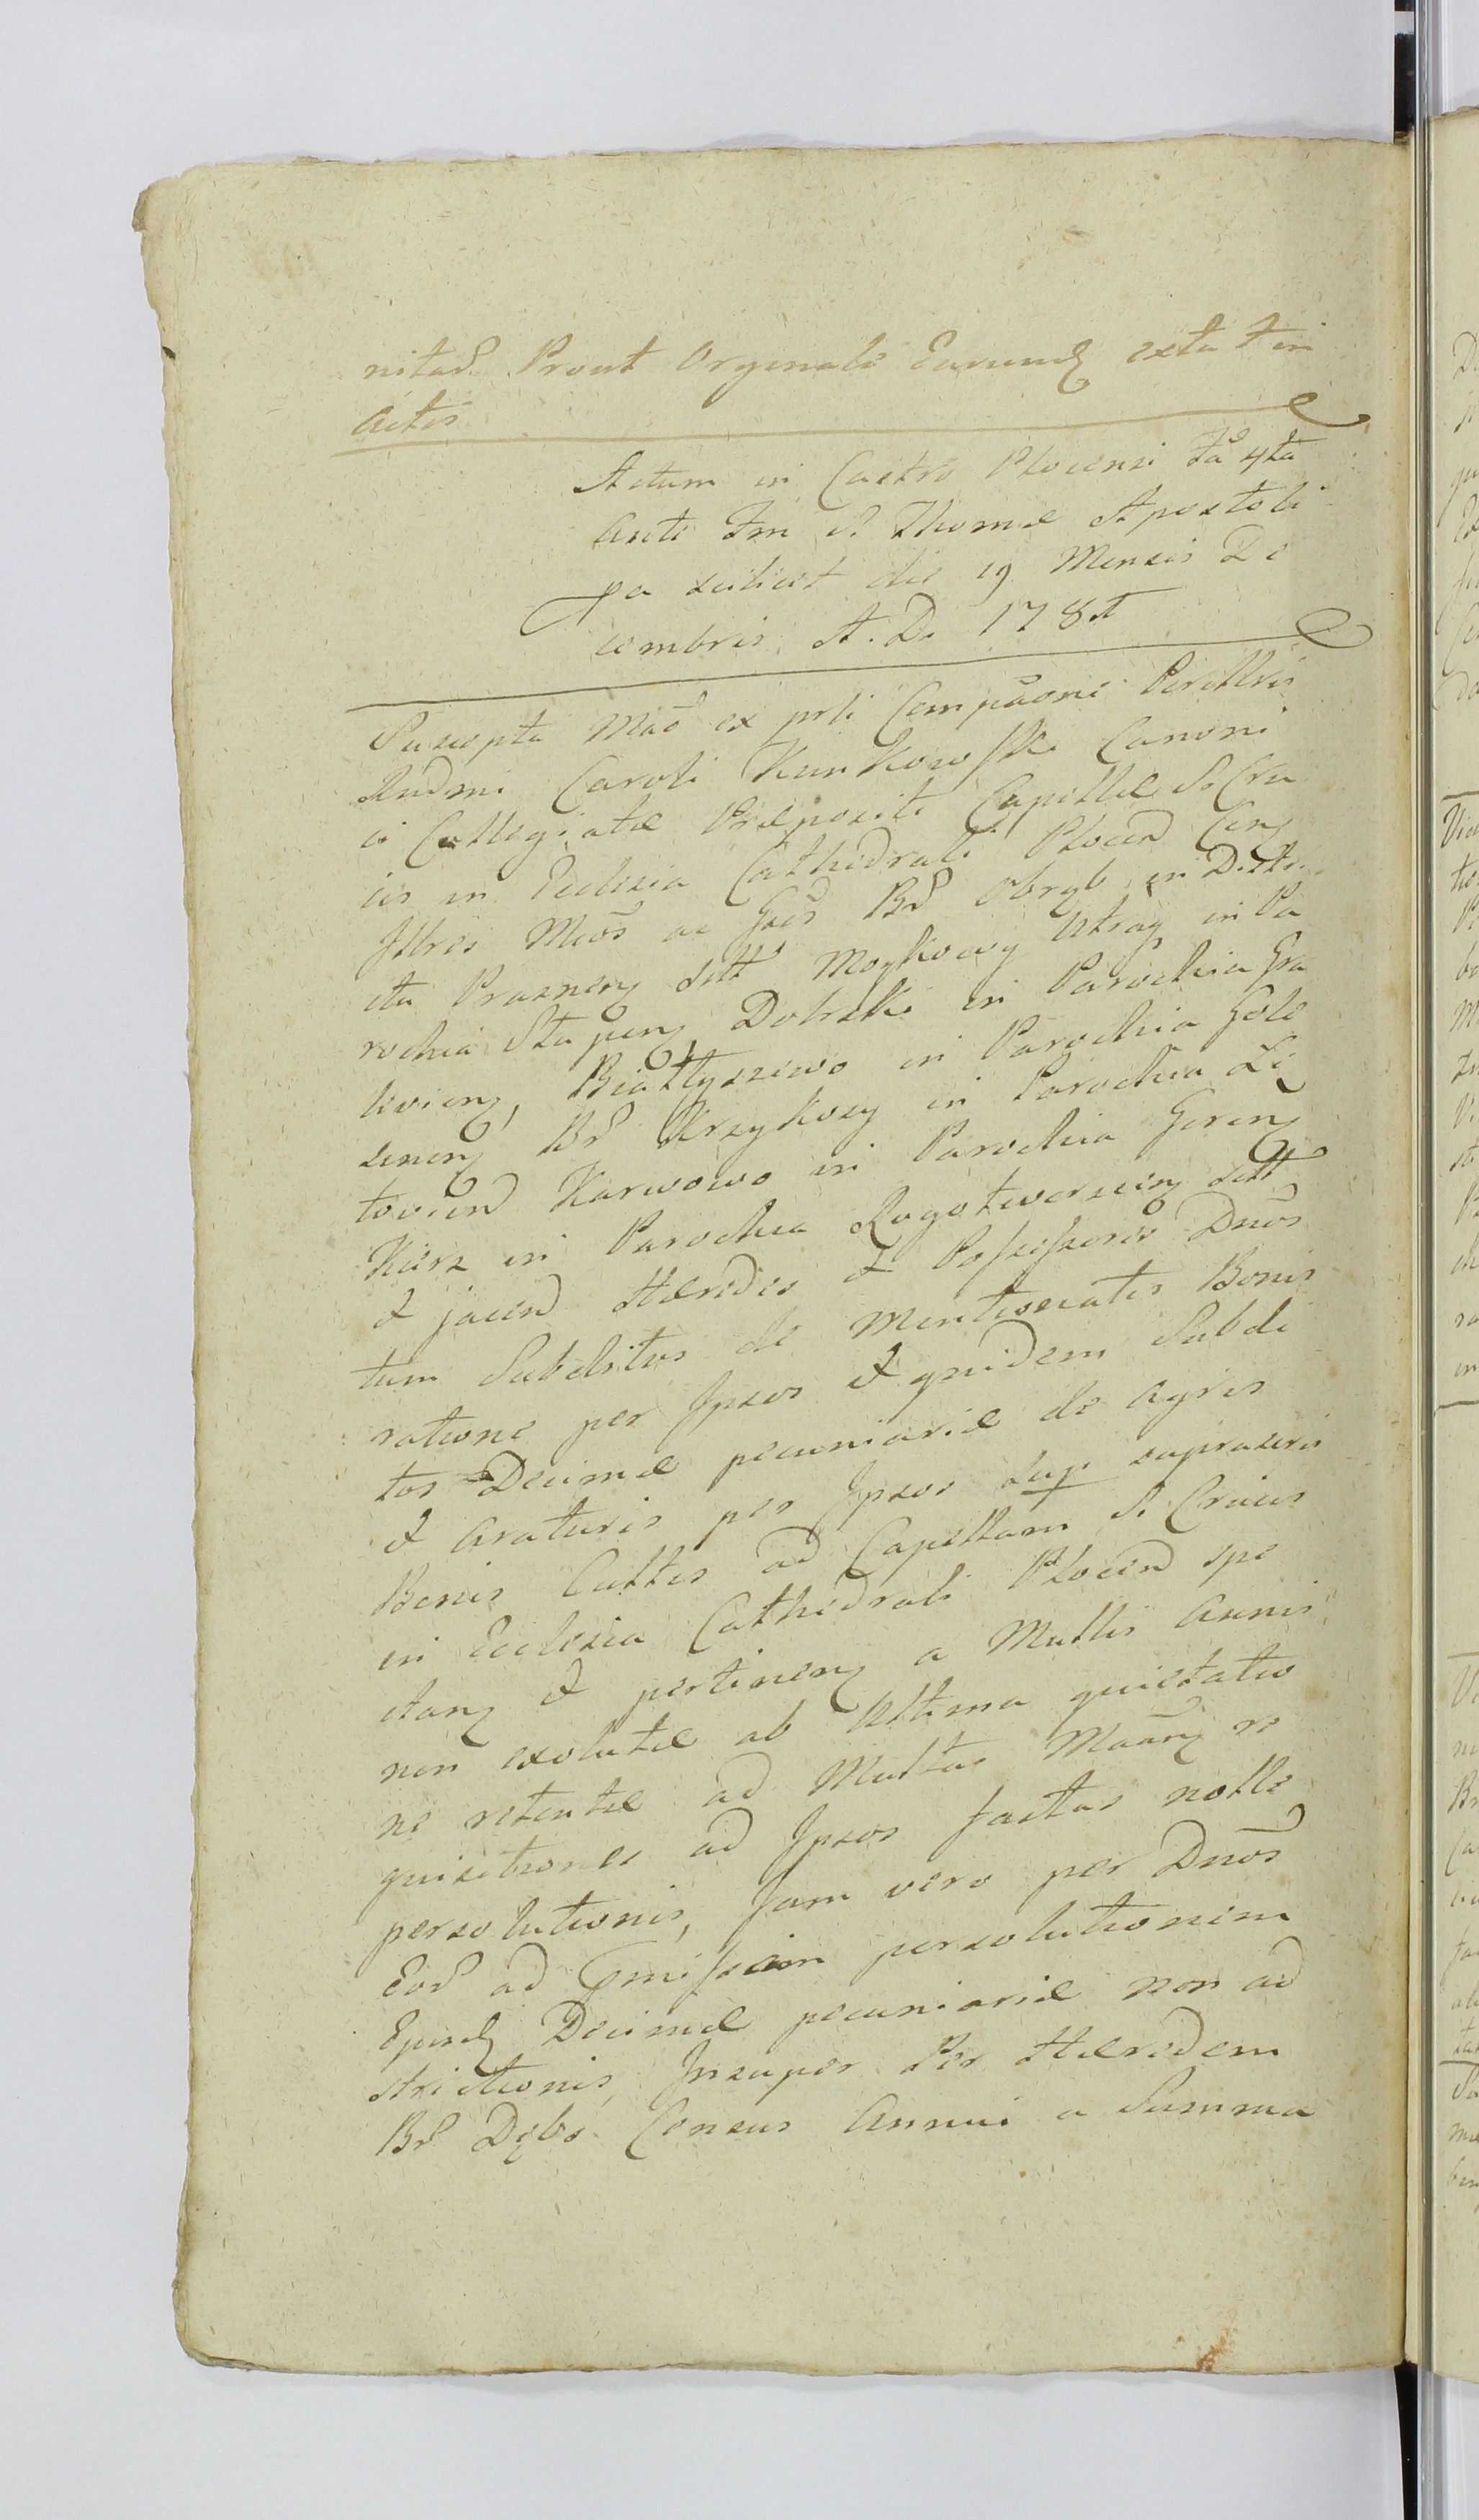 nitad Prout Orginale Earund extat in
Actis
Actum in Castro Plocensi fa 4ta
Ante Fm S. Thomæ Apostoli
pa scilicet die 19 Mensis De
cembris A. D. 178
Suscepta ex prti Comparone Perillris
Rndmi Caroli Kunkowski Canoni
ci Collegiatæ Præpositi Capellæ S. Cru
cis in Ecclesia Cathedrali Plocen Cen
Illres Mcos ac Gsos Br Obryb in Distri
ctu Praznen sitt Moykowy Utraq in Pa
rochia Stupen Dobrski in Parochia Gra
lkvien, Białtyszewo in Parochia Gole
sinen Br Krzykosy in Parochia Li
tovien Karwowo in Parochia Goren
Kierz in Parochia Rogotworscien sitt
& jacen Hæredes & Possessores Dnos
tum Subditos de Mentionatis Bonis
ratione per Ipsos & quidem Subdi
tos Decimæ pecuniariæ de Agris
& Araturis per Ipsos sup suprascris
Bonis Cultis ad Capellam S. Crucis
in Ecclesia Cathedrali Plocen spe
ctan & pertinen a Multis Annis
non exolutæ ab Ultima quietatio
ne retentæ ad Multas re
quisitiones ad Ipsos factas nolle
persolutionis, Jam vero per Dnos
Eod ad Omissam persolutionem
Ejusd Decimæ pecuniariæ non ad
strictionis, Insuper Per Hæredem
Br Dębo Census Annui a Summa